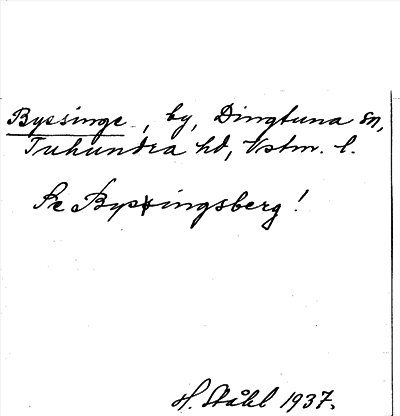 Bypsinge, by, Dingtuna sn,
Tuhundra hd, Vstm. l.
Se Bypsingsberg!
H. Ståhl 1937.